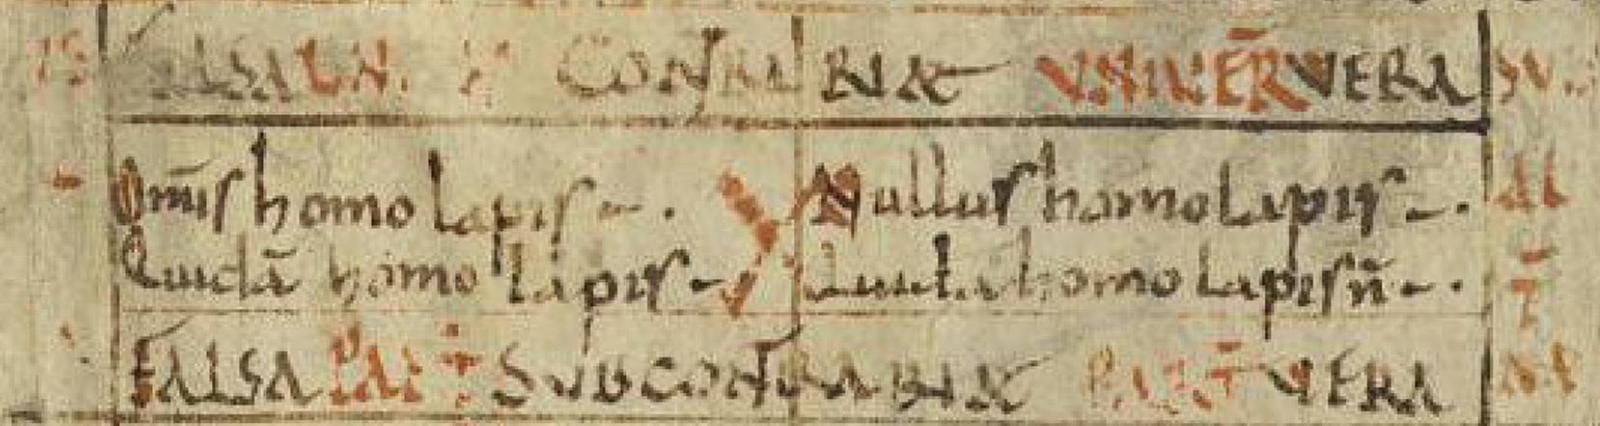 FALSA UN. CONTRARIAE UNIUER̄ VERA
Om̄is homo lapis ÷. Nullus homo lapis ÷.
Quidā homo lapis ÷ homo lapis n̄ ÷.
FALSA PAR SUBCONTRARIAE PART̄ VERA